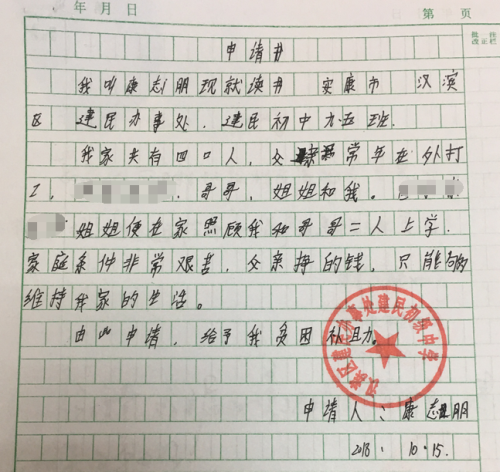 年 月 日 第 页
批 住
改正栏
申请书
我叫康志朋现就读书 安康市 汉滨
区 建民办事处,建民初中九五班.
我家共有四口人,父亲常年在外打
工, 哥哥,姐姐和我。
姐姐便在家照顾我和哥哥二人上学.
家庭条件非常艰苦,父亲挣的钱,只能够
维持我家的生活。
由此申请,给予我贫困补助.
汉滨区建民办事处建民初级中学
申请人:康志朋
2018. 10.15.